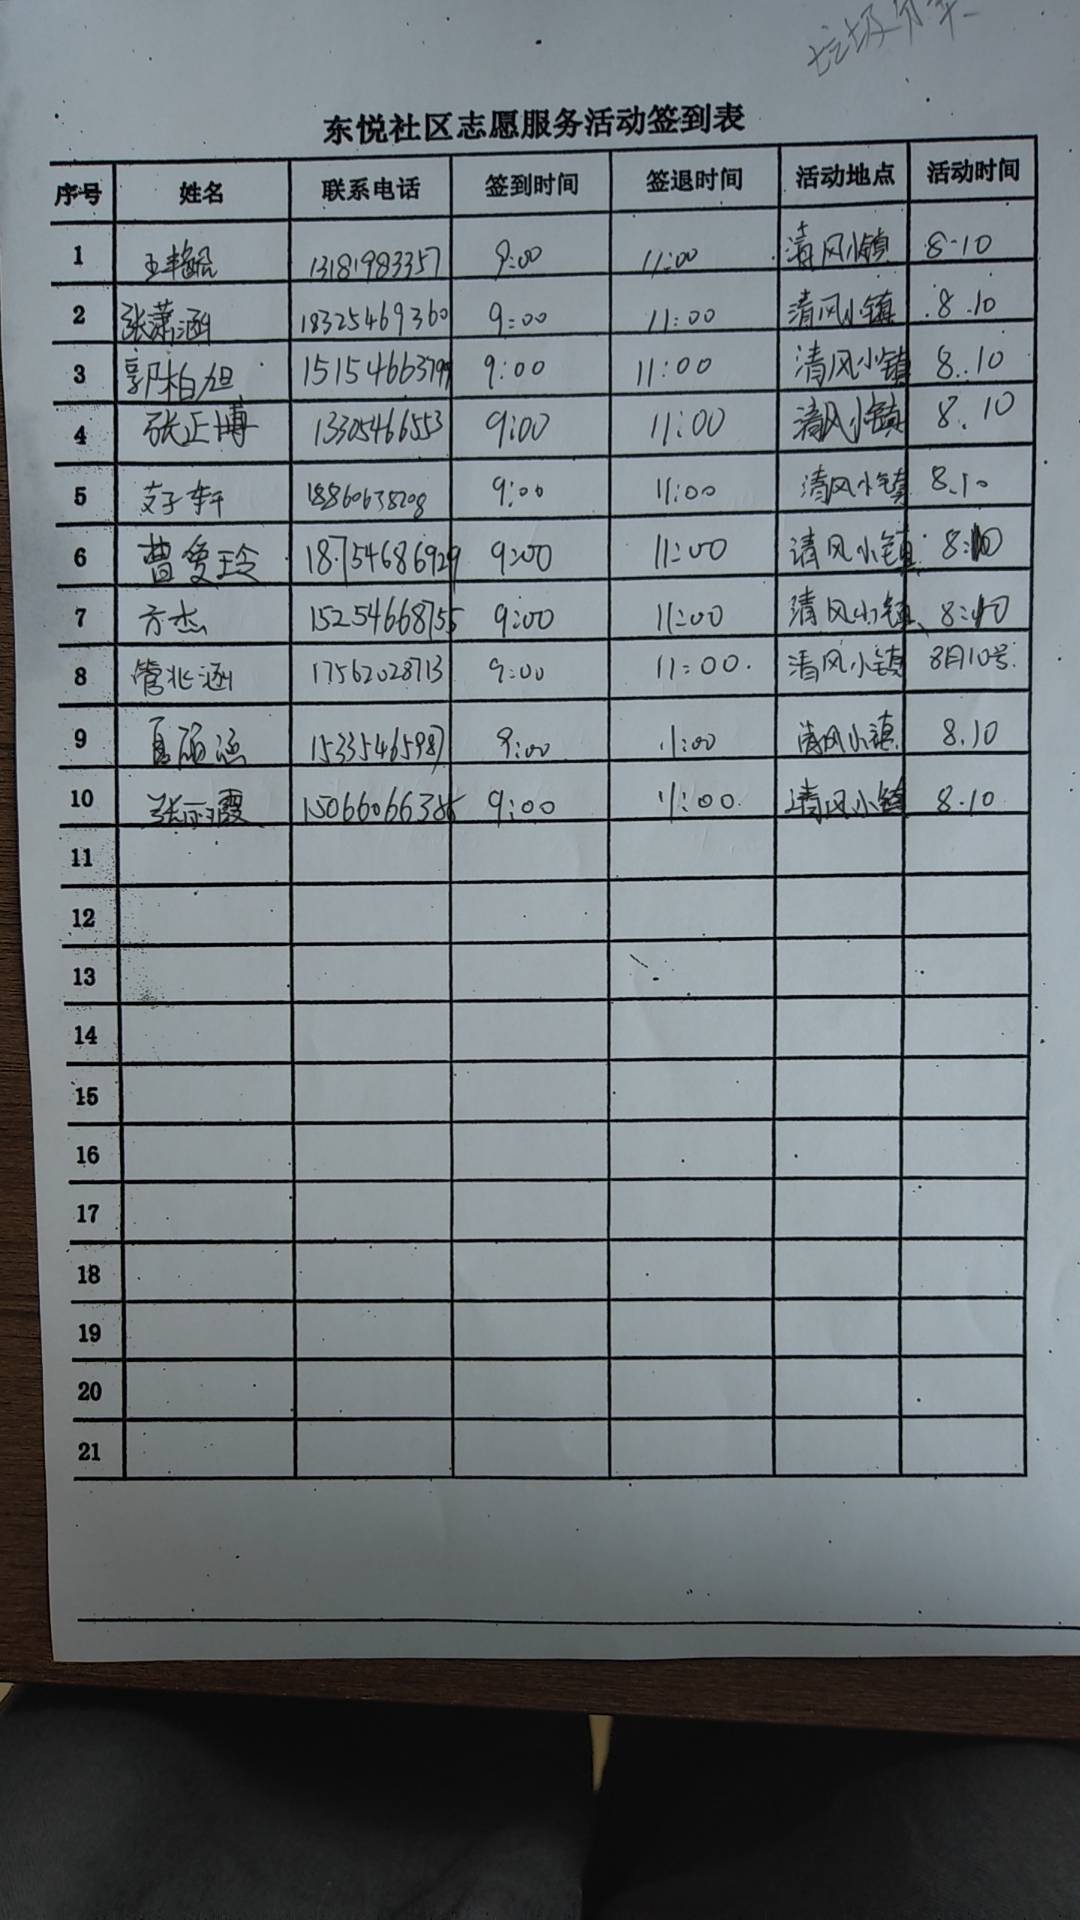 垃圾分类
东悦社区志愿服务活动签到表
序号 姓名 联系电话 签到时间 签退时间 活动地点 活动时间
1 王艳 13181983357 9:00 11:00 清风小镇 8.10
2 张萧涵 18325469360 9:00 11:00 清风小镇 8.10
3 郭柏旭 15154663799 9:00 11:00 清风小镇 8.10
4 张正博 13305466553 9:00 11:00 清风小镇 8.10
5 支子轩 18860638208 9:00 11:00 清风小镇 8.10
6 曹爱玲 18754686929 9:00 11:00 清风小镇 8:10
7 方杰 15254668755 9:00 11:00 清风小镇 8:10
8 管兆涵 17562028713 9:00 11:00. 清风小镇 8月10号.
9 夏硕涵 15335465987 9:00 11:00 清风小镇 8.10
10 张丽霞 15066066386 9:00 11:00. 清风小镇 8.10
11
12
13
14
15
16
17
18
19
20
21